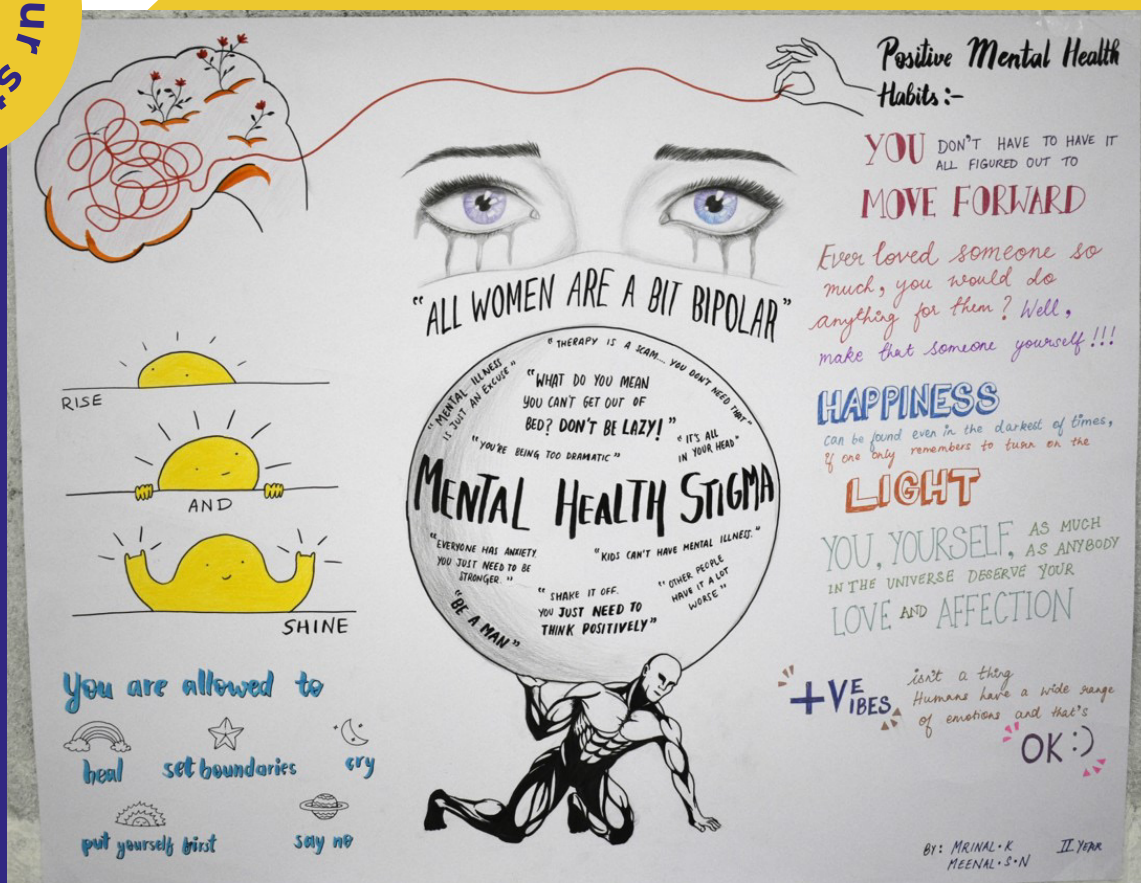 ur s
Positive Mental Health
Habits:-
YOU DON'T HAVE TO HAVE IT
ALL FIGURED OUT TO
MOVE FORWARD
Ever loved someone so
much, you would do
anything for them? Well,
make that someone yourself!!!
HAPPINESS
can be found even in the darkest of times,
if one only remembers to turn on the
LIGHT
YOU, YOURSELF, AS MUCH
AS ANYBODY
IN THE UNIVERSE DESERVE YOUR
LOVE AND AFFECTION
+VE
VIBES
isn't a thing
Humans have a wide range
of emotions and that's
"OK :)
"ALL WOMEN ARE A BIT BIPOLAR"
"THERAPY IS A SCAM... YOU DON'T NEED THAT"
"MENTAL ILLNESS
IS JUST AN EXCUSE"
"WHAT DO YOU MEAN
YOU CAN'T GET OUT OF
BED? DON'T BE LAZY!"
"YOU'RE BEING TOO DRAMATIC"
"IT'S ALL
IN YOUR HEAD"
MENTAL HEALTH STIGMA
"EVERYONE HAS ANXIETY
YOU JUST NEED TO BE
STRONGER."
"KIDS CAN'T HAVE MENTAL ILLNESS."
"SHAKE IT OFF.
YOU JUST NEED TO
THINK POSITIVELY"
"OTHER PEOPLE
HAVE IT A LOT
WORSE"
"BE A MAN"
RISE
AND
SHINE
You are allowed to
heal
set boundaries
cry
put yourself first
say no
BY: MRINAL.K
MEENAL.S.N
II YEAR